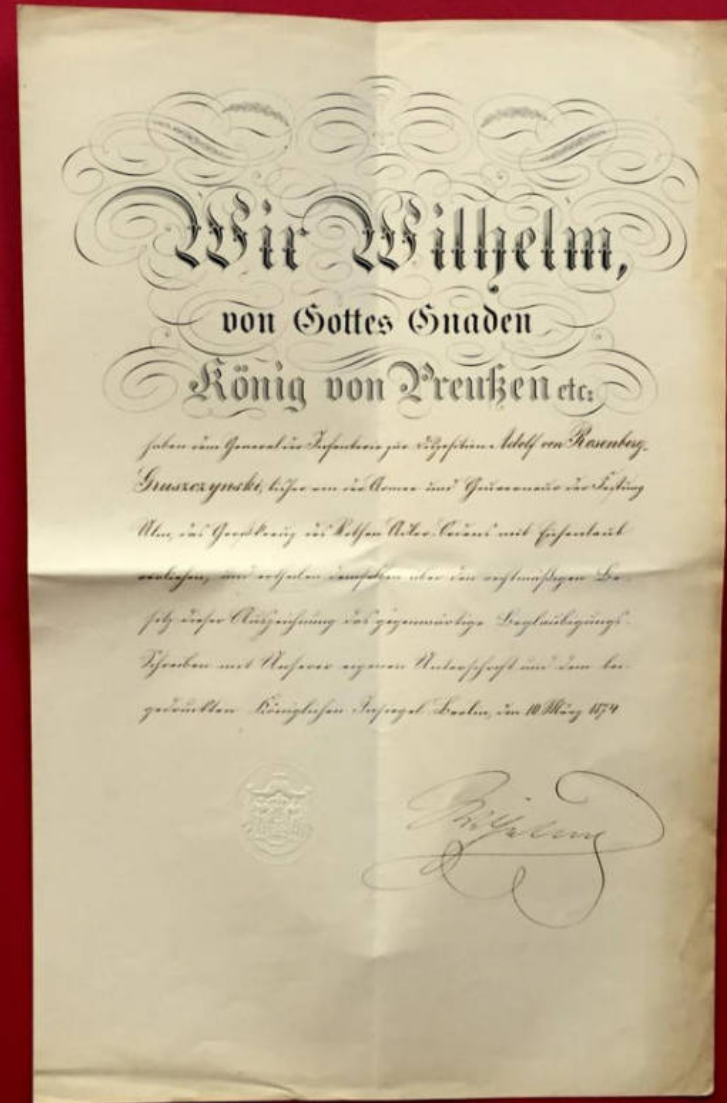 Wir Wilhelm,
von Gottes Gnaden
König von Preußen etc:
haben dem General der Infanterie zur Disposition Adolf von Rosenberg-
Gruszczynski, bisher von der Armee und Gouverneur der Festung
Ulm, das Großkreuz des Rothen Adler-Ordens mit Eichenlaub
verliehen, und ertheilen demselben über den rechtmäßigen Be-
sitz dieser Auszeichnung das gegenwärtige Beglaubigungs-
Schreiben mit Unserer eigenen Unterschrift und dem bei-
gedruckten Königlichen Insiegel. Berlin, den 10 März 1874
Wilhelm